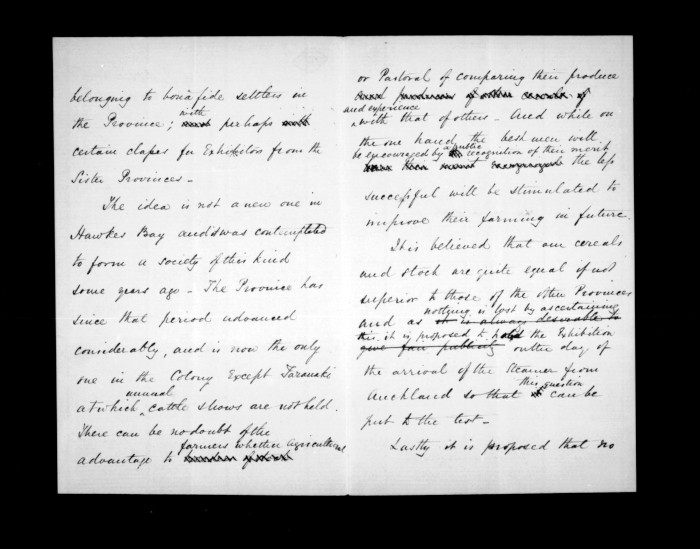 belonging to bona fide settlers in
with
the Province; perhaps
certain classes for Exhibitors from the
Sister Provinces -
The idea is not a new one in
Hawkes Bay and was contemplated
to form a society of this kind
some years ago - The Province has
since that period advanced
considerably, and is now the only
one in the Colony Except Taranaki
annual
at which cattle shows are not held.
There can be no doubt of the
farmers whether Agricultural
advantage to
or Pastoral of comparing their produce
and experience
with that of others - And while on
the one hand the best men will
be encouraged by a public recognition of their merit
the less
successful will be stimulated to
improve their farming in future.
It is believed that our cereals
and stock are quite equal if not
superior to those of the other Provinces
nothing is lost by ascertaining
and as it is always desirable to
this, it is proposed to hold the Exhibition
give fair publicity on the day of
the arrival of the Steamer from
this question
Auckland so that can be
put to the test -
Lastly it is proposed that no